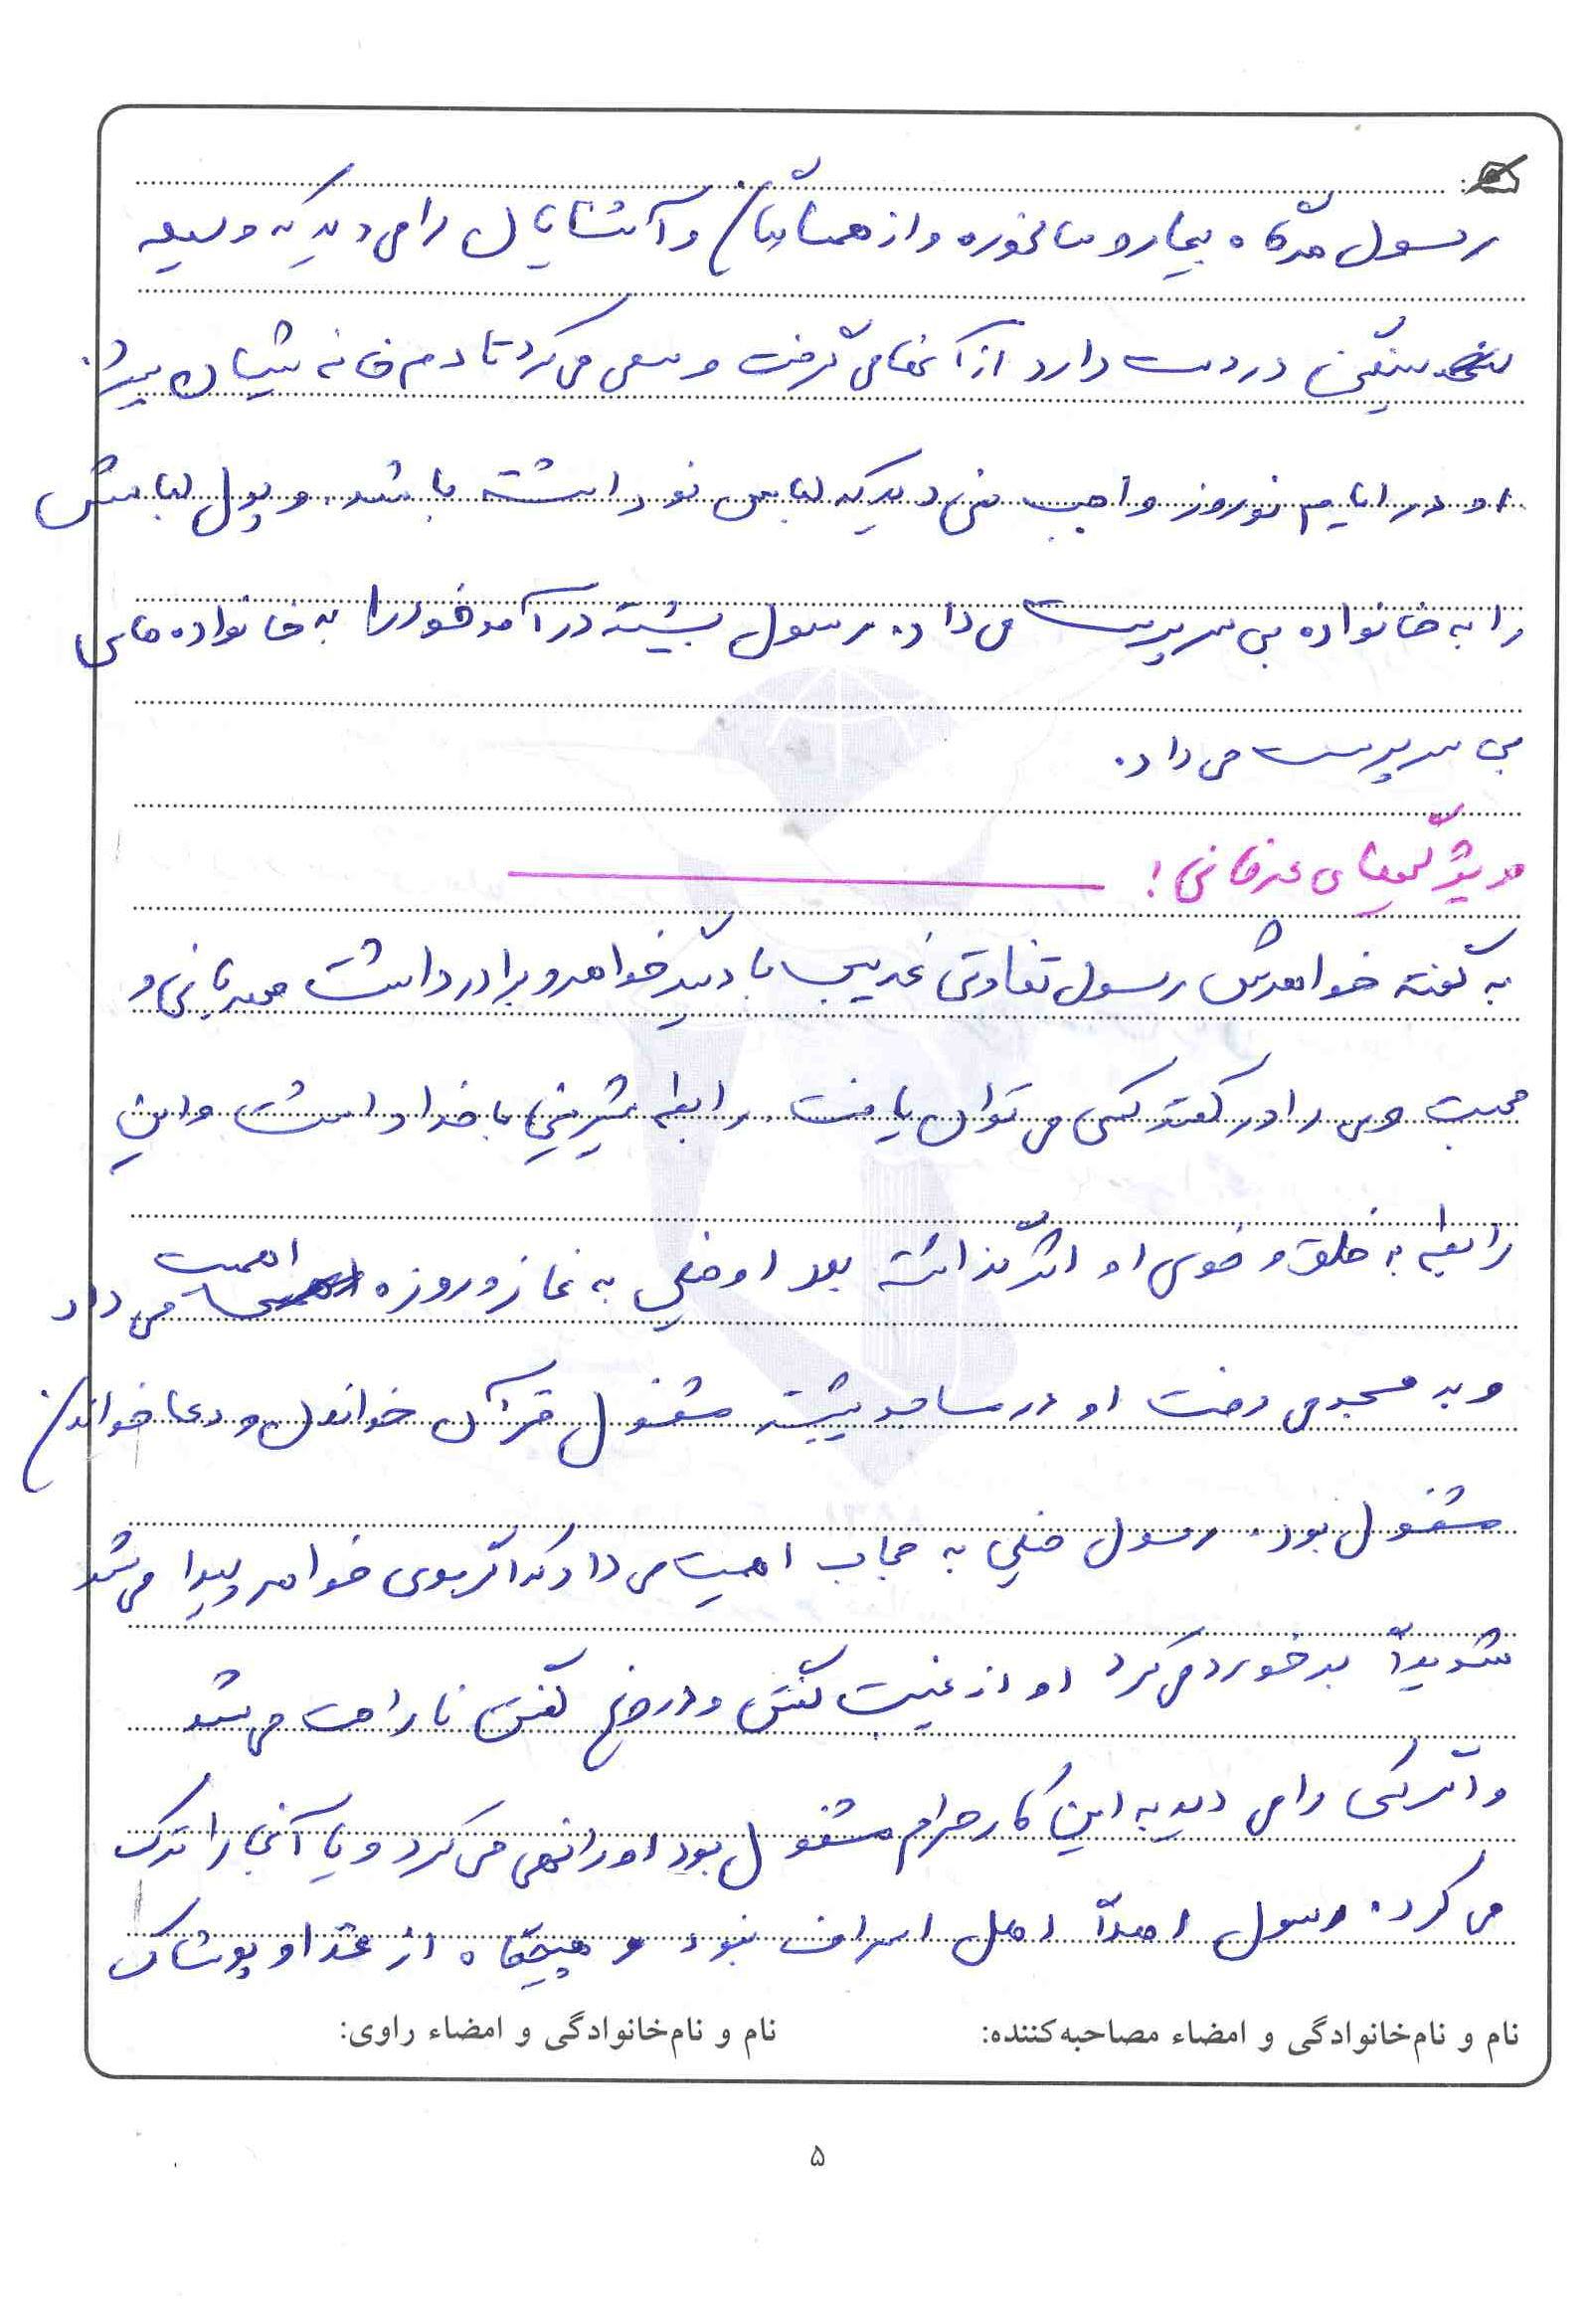 رسول هرگاه بیمار و سالخورده و از همسایگان و آشنایان را می دید که وسیله
سنگین در دست دارد از آنها می گرفت و سعی می کرد تا دم خانه شان ببرد.
او در ایام نوروز واجب نمی دید که لباس نو داشته باشد. و پول لباسش
را به خانواده بی سرپرست می داد. رسول بیشتر درآمد خود را به خانواده های
بی سرپرست می داد.
ویژگیهای عرفانی:
به گفته خواهرش رسول تفاوتی غریب با دیگر خواهر و برادر داشت مهربانی و
محبت وی را در کمتر کسی می توان یافت. رابطه شیرینی با خدا داشت و این
رابطه به خلق و خوی او اثر گذاشته بود او خیلی به نماز و روزه اهمیت می داد
و به مسجد می رفت او در مساجد بیشتر مشغول قرآن خواندن و دعا خواندن
مشغول بود. رسول خیلی به حجاب اهمیت می داد که اگر موی خواهر پیدا می شد
شدیداً برخورد می کرد او از غیبت گفتن و دروغ گفتن ناراحت می شد
و اگر کسی را می دید به این کار حرام مشغول بود او را نهی می کرد و یا آنجا را ترک
می کرد. رسول اصلاً اهل اسراف نبود و هیچگاه از غذا و پوشاک
نام و نام‌خانوادگی و امضاء مصاحبه‌کننده: نام و نام‌خانوادگی و امضاء راوی:
۵